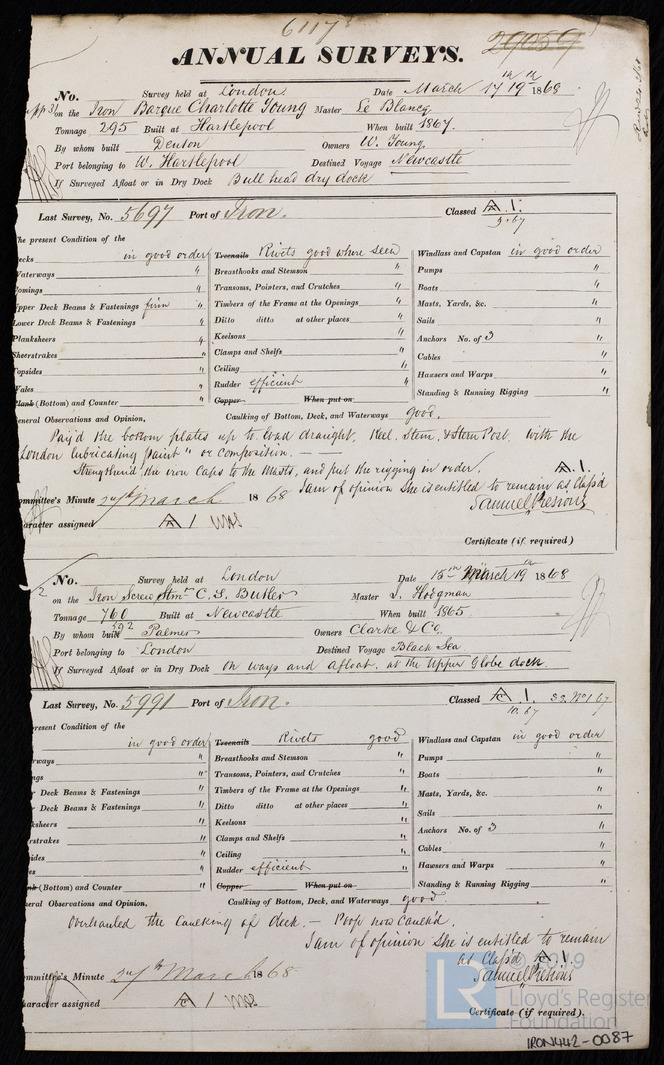 6117
29059
ANNUAL SURVEYS.
No. Survey held at London Date March 17th 19th 1868
on the Iron Barque Charlotte Young Master Le Blancq
Tonnage 295 Built at Hartlepool When built 1867.
By whom built Denton Owners W. Young
Port belonging to W. Hartlepool Destined Voyage Newcastle
If Surveyed Afloat or in Dry Dock Bull head dry dock
Last Survey, No. 5697 Port of Iron. Classed A 1.
9.67
The present Condition of the
Decks in good order Treenails Rivets good where seen Windlass and Capstan in good order
Waterways " Breasthooks and Stemson " Pumps "
Comings " Transoms, Pointers, and Crutches " Boats "
Upper Deck Beams & Fastenings firm " Timbers of the Frame at the Openings " Masts, Yards, &c. "
Lower Deck Beams & Fastenings " Ditto ditto at other places " Sails "
Planksheers " Keelsons " Anchors No. of 3 "
Sheerstrakes " Clamps and Shelfs " Cables "
Topsides " Ceiling " Hawsers and Warps "
Wales " Rudder efficient " Standing & Running Rigging "
Plank (Bottom) and Counter " Copper When put on
General Observations and Opinion, Caulking of Bottom, Deck, and Waterways good.
Pay'd the bottom plates up to load draught, Keel, Stem, & Stern Post, with the
London lubricating paint " or composition. —
Strengthened the iron Caps to the Masts, and put the rigging in order.
I am of opinion She is entitled to remain as Class'd A.1.
Committee's Minute 24th March 1868 Samuel Presious
Character assigned A 1
Certificate (if required)
No. Survey held at London Date 15th March 19th 1868
on the Iron Screw Stmr C. S. Butler Master S. Hodgman
Tonnage 760 Built at Newcastle When built 1865.
592
By whom built Palmer Owners Clarke & Co.
Port belonging to London Destined Voyage Black Sea
If Surveyed Afloat or in Dry Dock On ways and afloat. at the Upper Globe dock.
Last Survey, No. 5991 Port of Iron. Classed A 1. SS. No 1 67
10.67
present Condition of the
in good order Treenails Rivets good Windlass and Capstan in good order
rways " Breasthooks and Stemson " Pumps "
ngs " Transoms, Pointers, and Crutches " Boats "
r Deck Beams & Fastenings " Timbers of the Frame at the Openings " Masts, Yards, &c. "
r Deck Beams & Fastenings " Ditto ditto at other places " Sails "
ksheers " Keelsons " Anchors No. of 3 "
rstrakes " Clamps and Shelfs " Cables "
ides " Ceiling " Hawsers and Warps "
es " Rudder efficient " Standing & Running Rigging "
nk (Bottom) and Counter " Copper When put on
eral Observations and Opinion, Caulking of Bottom, Deck, and Waterways good.
Overhauled the Caulking of deck. — Poop now caulk'd.
I am of opinion She is entitled to remain
as Class'd A 1
Committee's Minute 24th March 1868 Samuel Presious
Character assigned A 1
Certificate (if required).
© 2019
LR
Lloyd's Register
Foundation
IRON442-0087